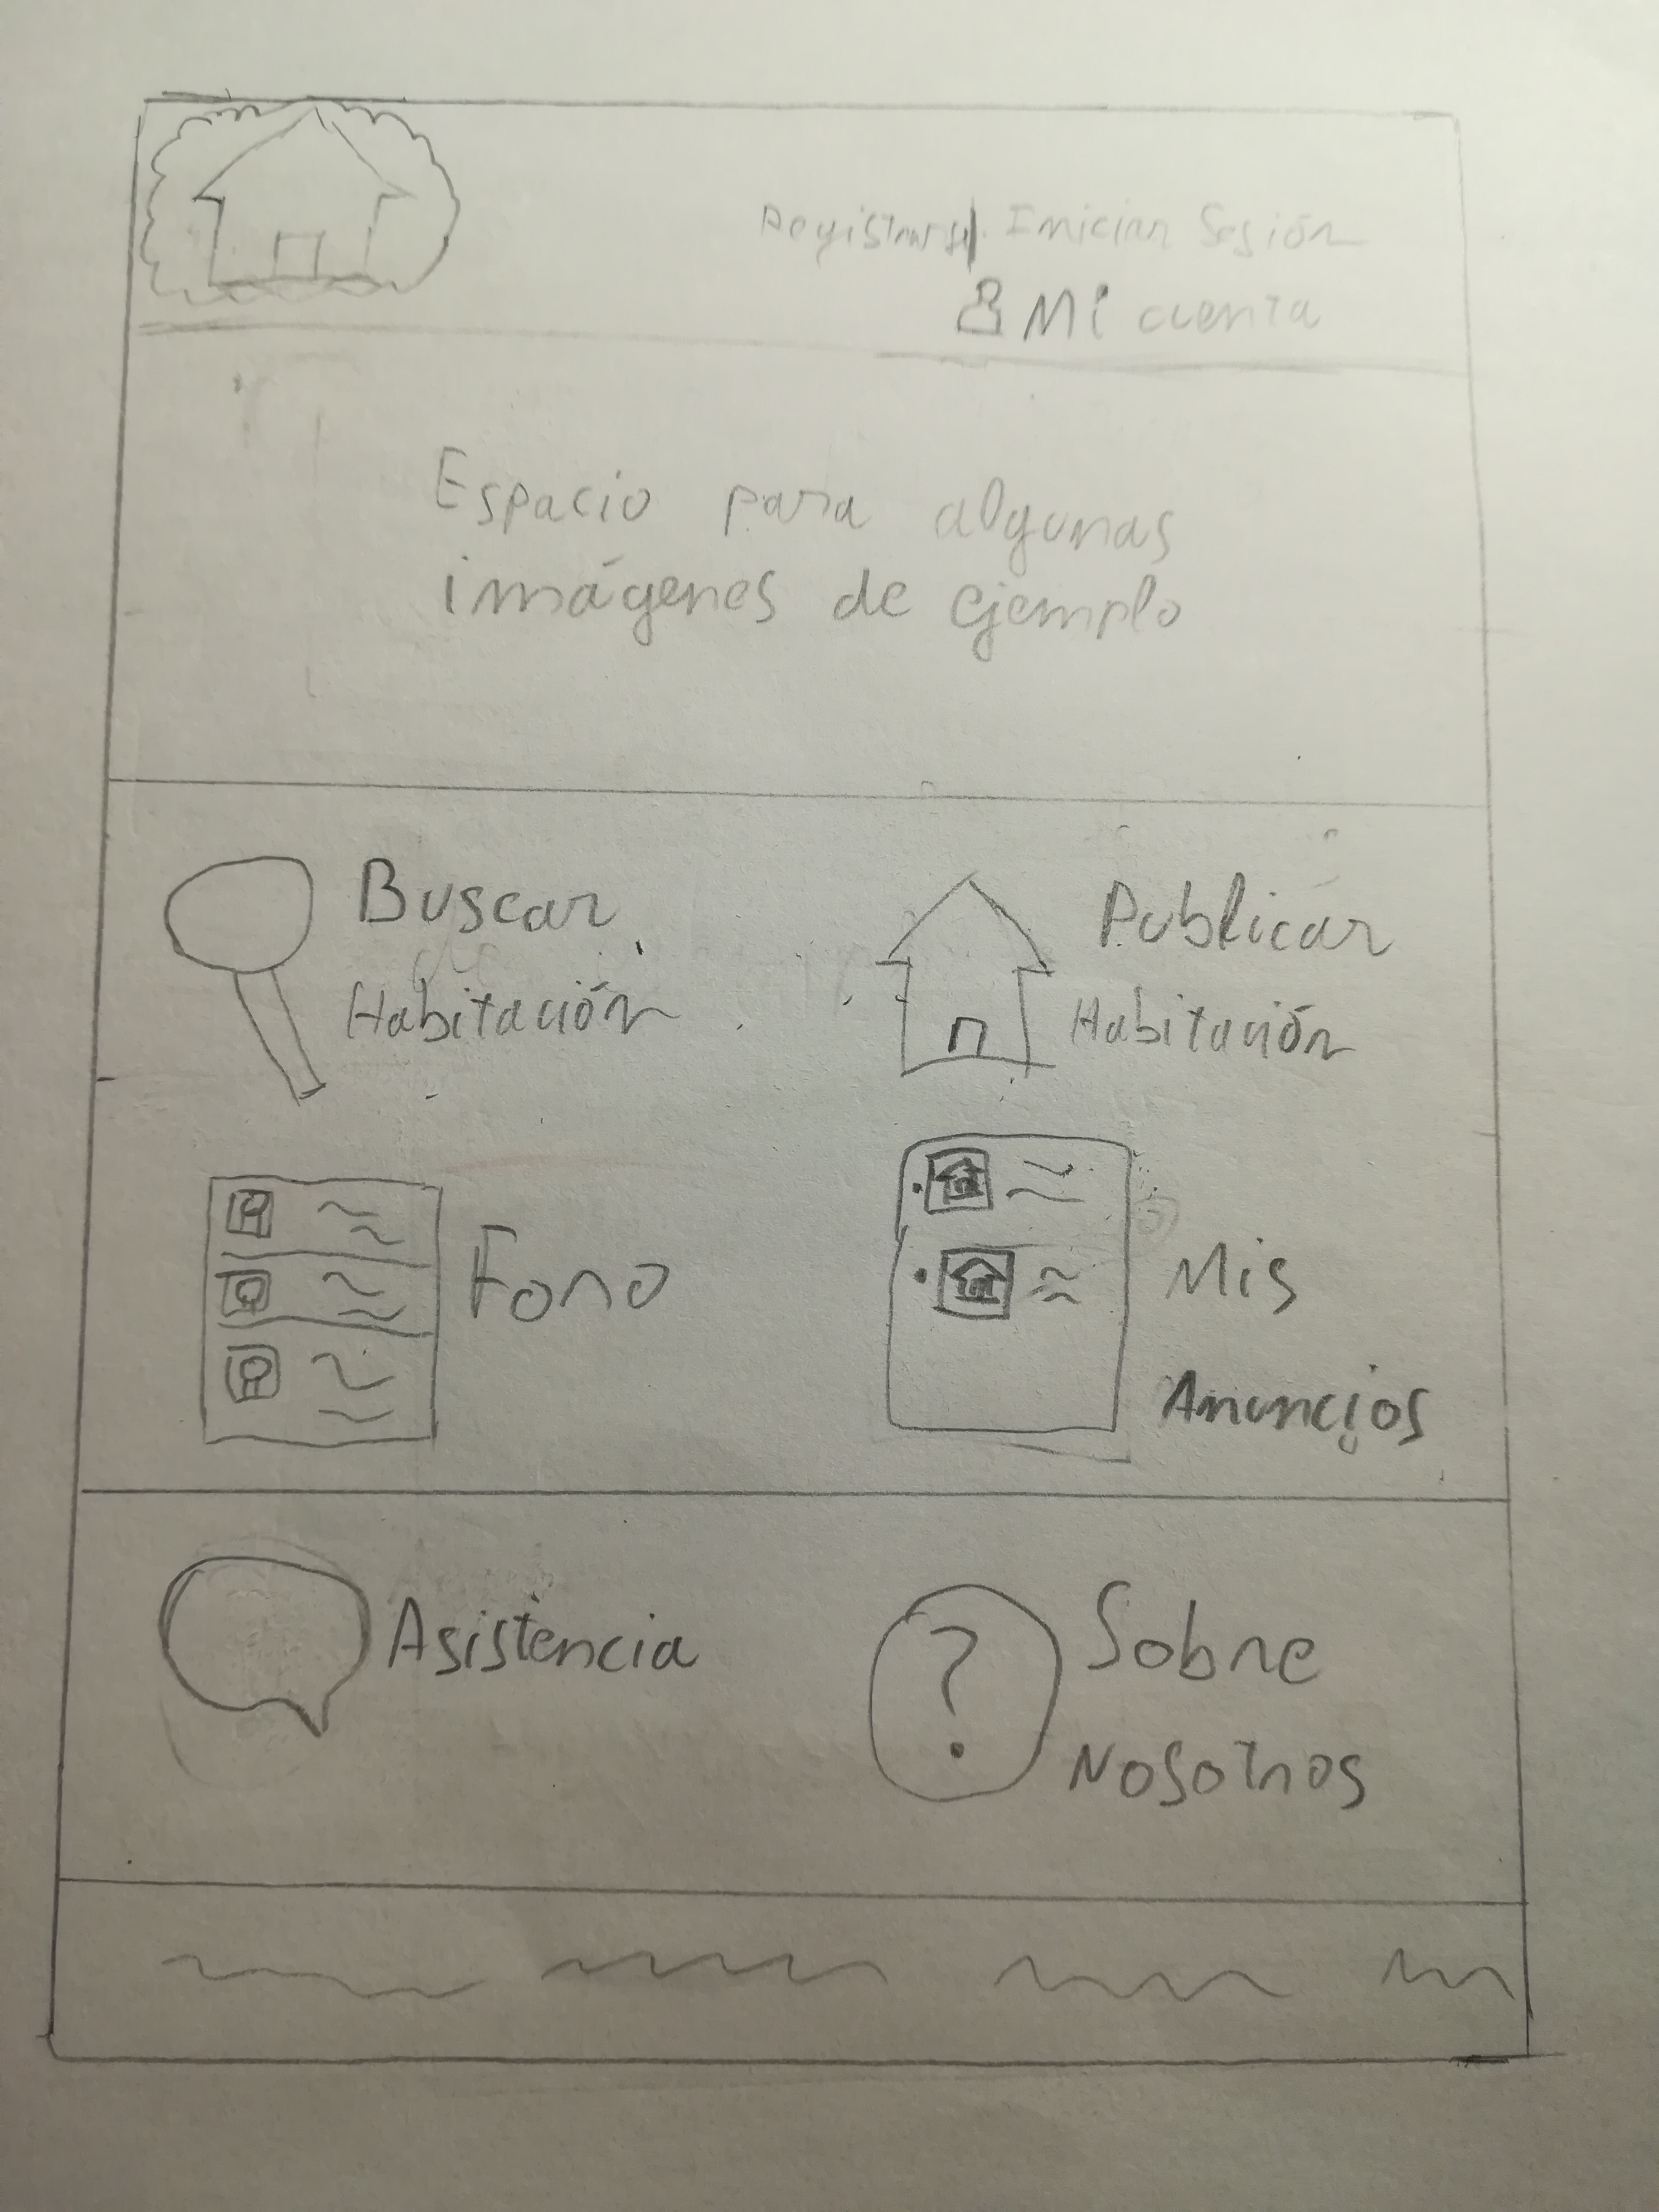 Registrarse | Iniciar Sesión
Mi cuenta
Espacio para algunas
imágenes de ejemplo
Buscar
Habitación
Publicar
Habitación
Foro
Mis
Anuncios
Asistencia
?
Sobre
Nosotros